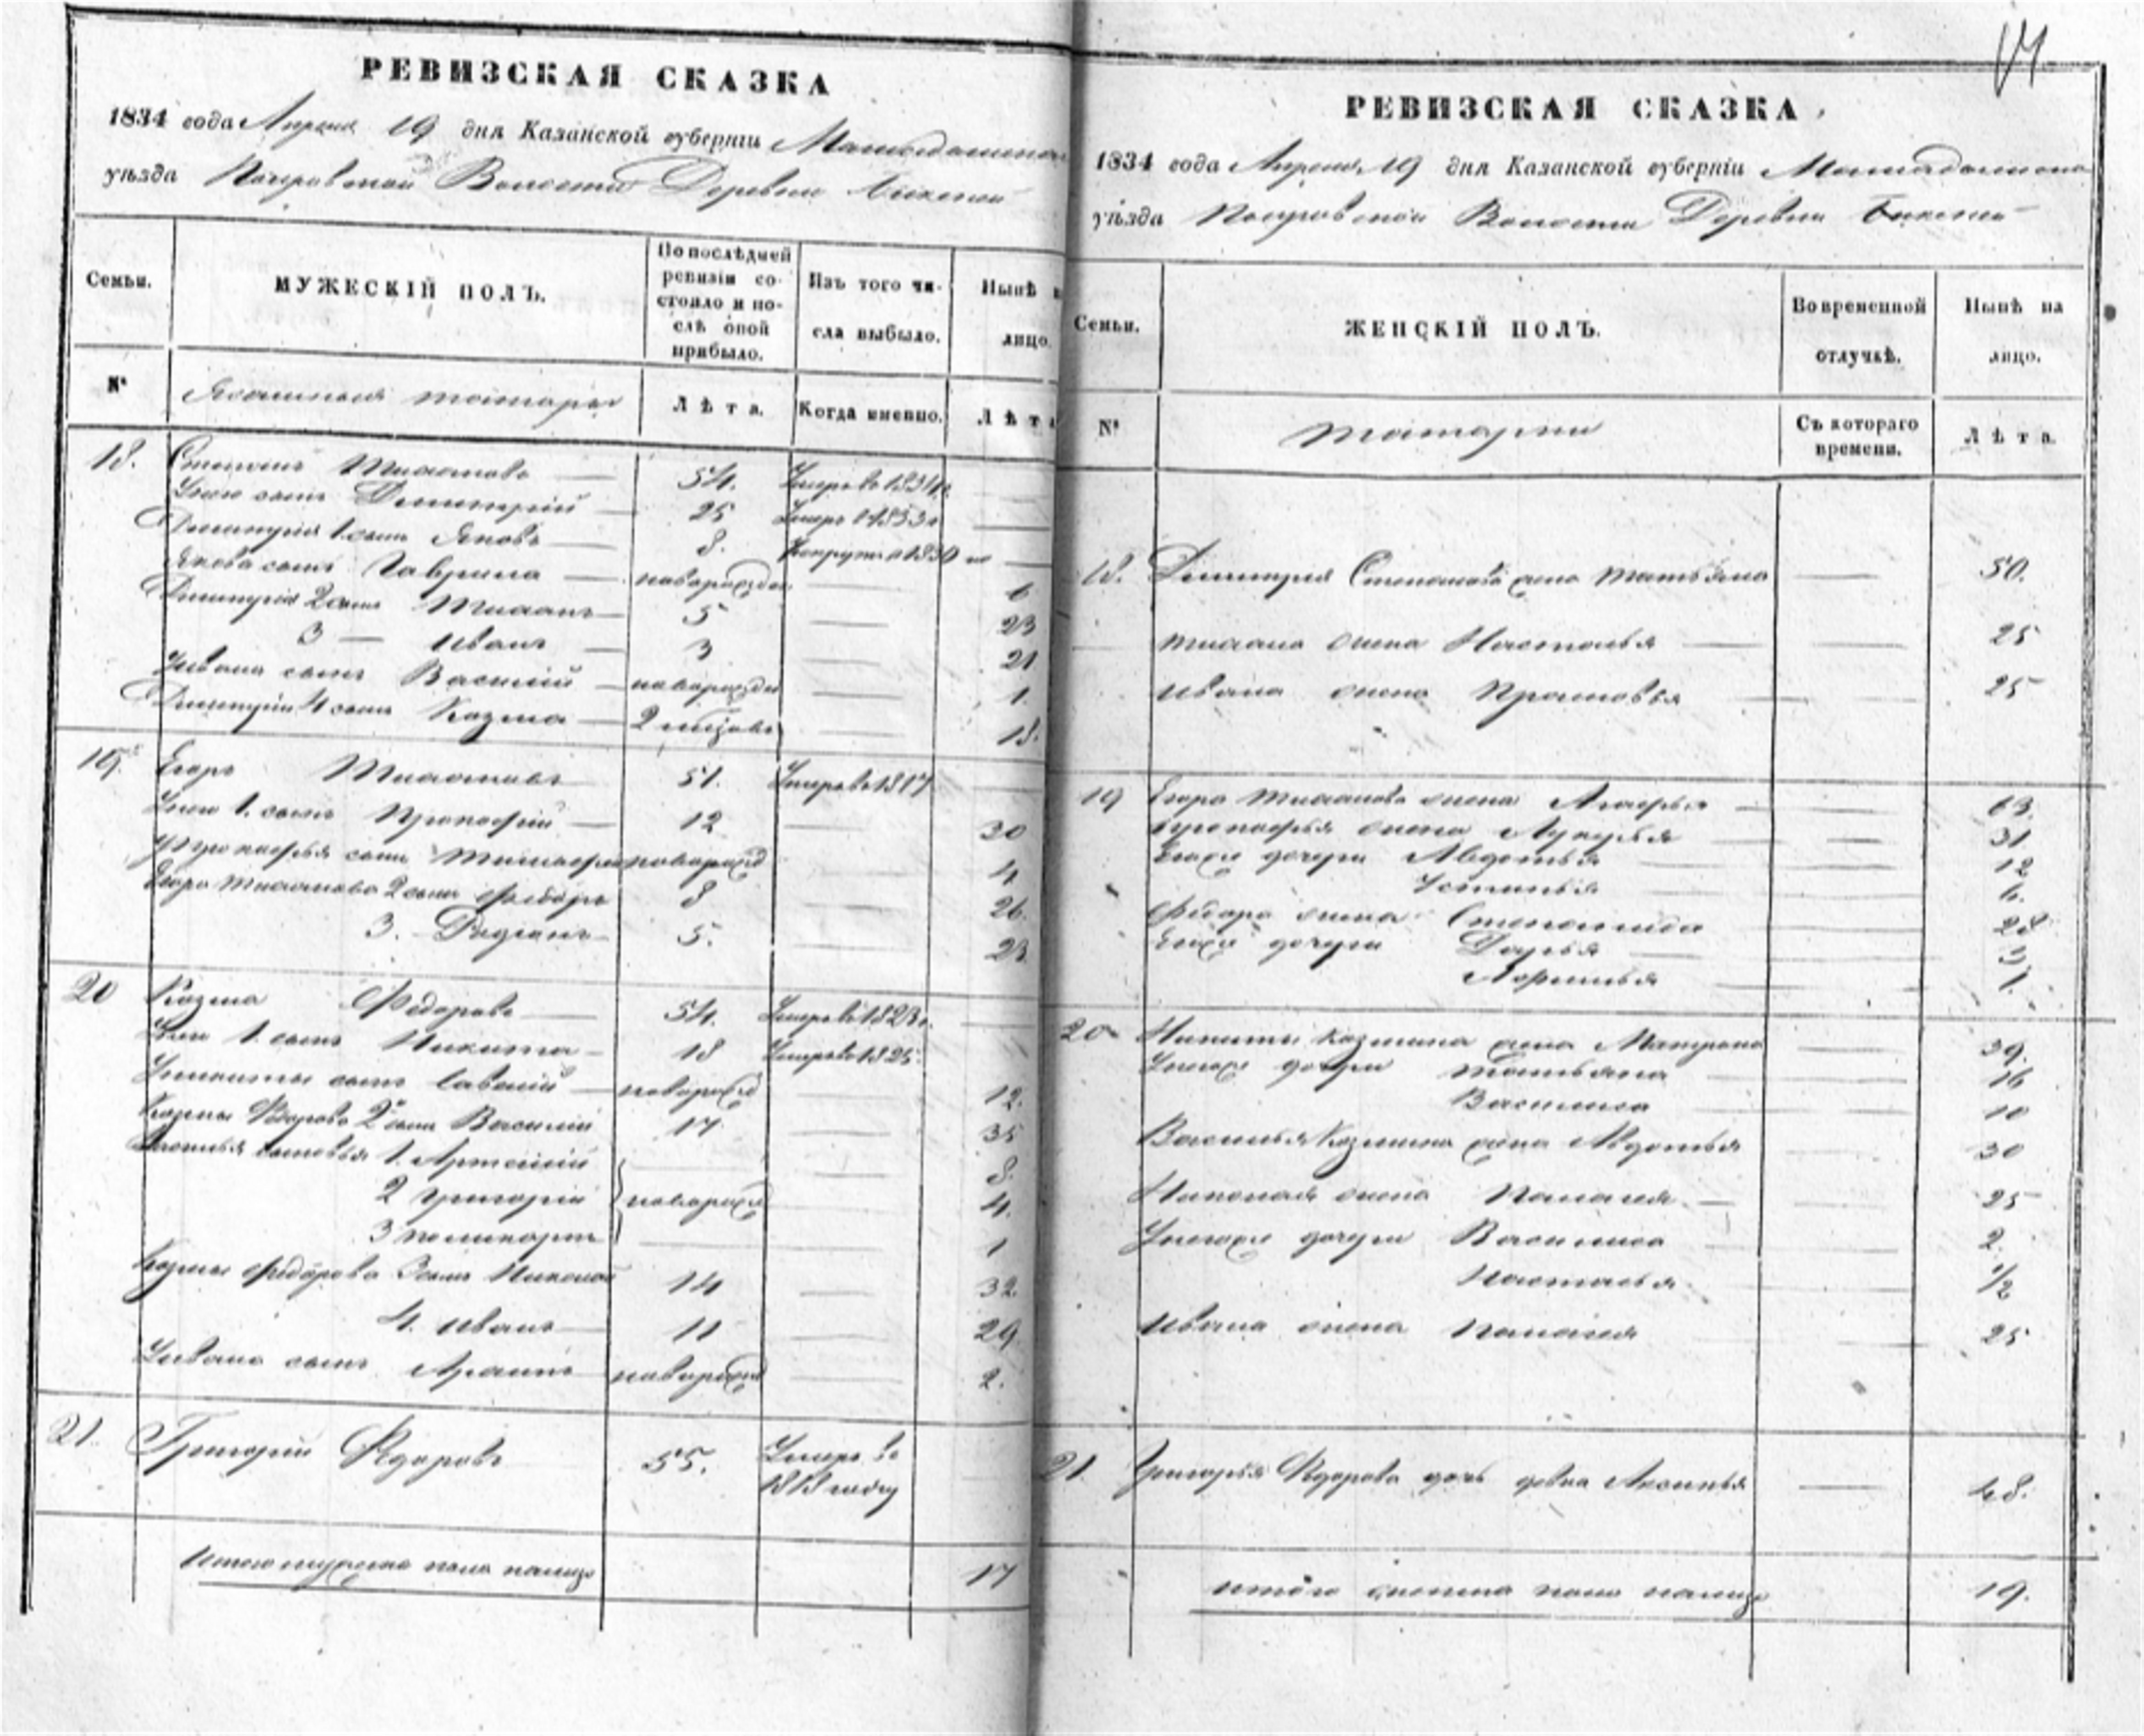 РЕВИЗСКАЯ СКАЗКА
1834 года Апреля 19 дня Казанской губерніи
уѣзда Волости Деревни
Семьи.
МУЖЕСКІЙ ПОЛЪ.
По послѣдней ревизіи состояло и послѣ оной прибыло.
Изъ того числа выбыло.
Нынѣ
лицо.
№
татары
Лѣта.
Когда именно.
Лѣт
18. Степанъ 54. Умеръ в
сынъ Димитрій 25 Умеръ 1833
Димитрія 1. сынъ Яковъ 8. 1830
Якова сынъ Гаврила новорожден 6
Димитрія 2 сынъ 5 23
3 Иванъ 3 21
Ивана сынъ Василій новорожден 1.
Димитрія 4 сынъ Козма 2 18.
19. Егоръ 51. Умеръ в 1817
1. сынъ Прокофій 12 30
Прокофья сынъ новорожд 4
Егора 2 сынъ Федоръ 8 26.
3. Родіонъ 5. 23
20 Козма Федоровъ 54. Умеръ в 1823
1. сынъ Никита 18 Умеръ в 1825
Никиты сынъ Савелій новорожд 12.
Козмы Федорова 2 сынъ Василій 17 35
сыновья 1. Артемій 8.
2 Григорій новорожд 4.
3 Поликарпъ 1
Козмы Федорова 3 сынъ Николай 14 32
4. Иванъ 11 29
Ивана сынъ новорожд 2.
21. Григорій Федоровъ 55. Умеръ въ
1818 году
Итого мужска пола налицо 17
РЕВИЗСКАЯ СКАЗКА
1834 года Апреля 19 дня Казанской губерніи
уѣзда Волости Деревни
Семьи.
ЖЕНСКІЙ ПОЛЪ.
Во временной отлучкѣ.
Нынѣ на лицо.
№
татарки
Съ котораго времени.
Лѣта.
18. Димитрія Степанова жена Татьяна 50.
жена Настасья 25
Ивана жена Прасковья 25
19 Егора жена Агафья 63.
Прокофья жена Лукерья 31
дочери Авдотья 12
Устинья 6.
Федора жена Степанида 28
дочери Дарья 3
1.
20 Никиты Козмина жена Матрена 39.
дочери Татьяна 16
Василиса 10
Василья Козмина жена Авдотья 30
Николая жена Палагея 25
дочери Василиса 2.
Настасья 1/2
Ивана жена Палагея 25
21. Григорья Федорова дочь девка Аксинья 48.
итого женска пола налицо 19.